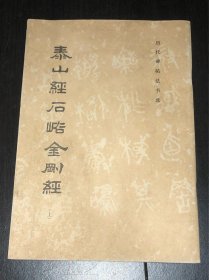 历代碑帖法书选
泰山經石峪金剛經
上